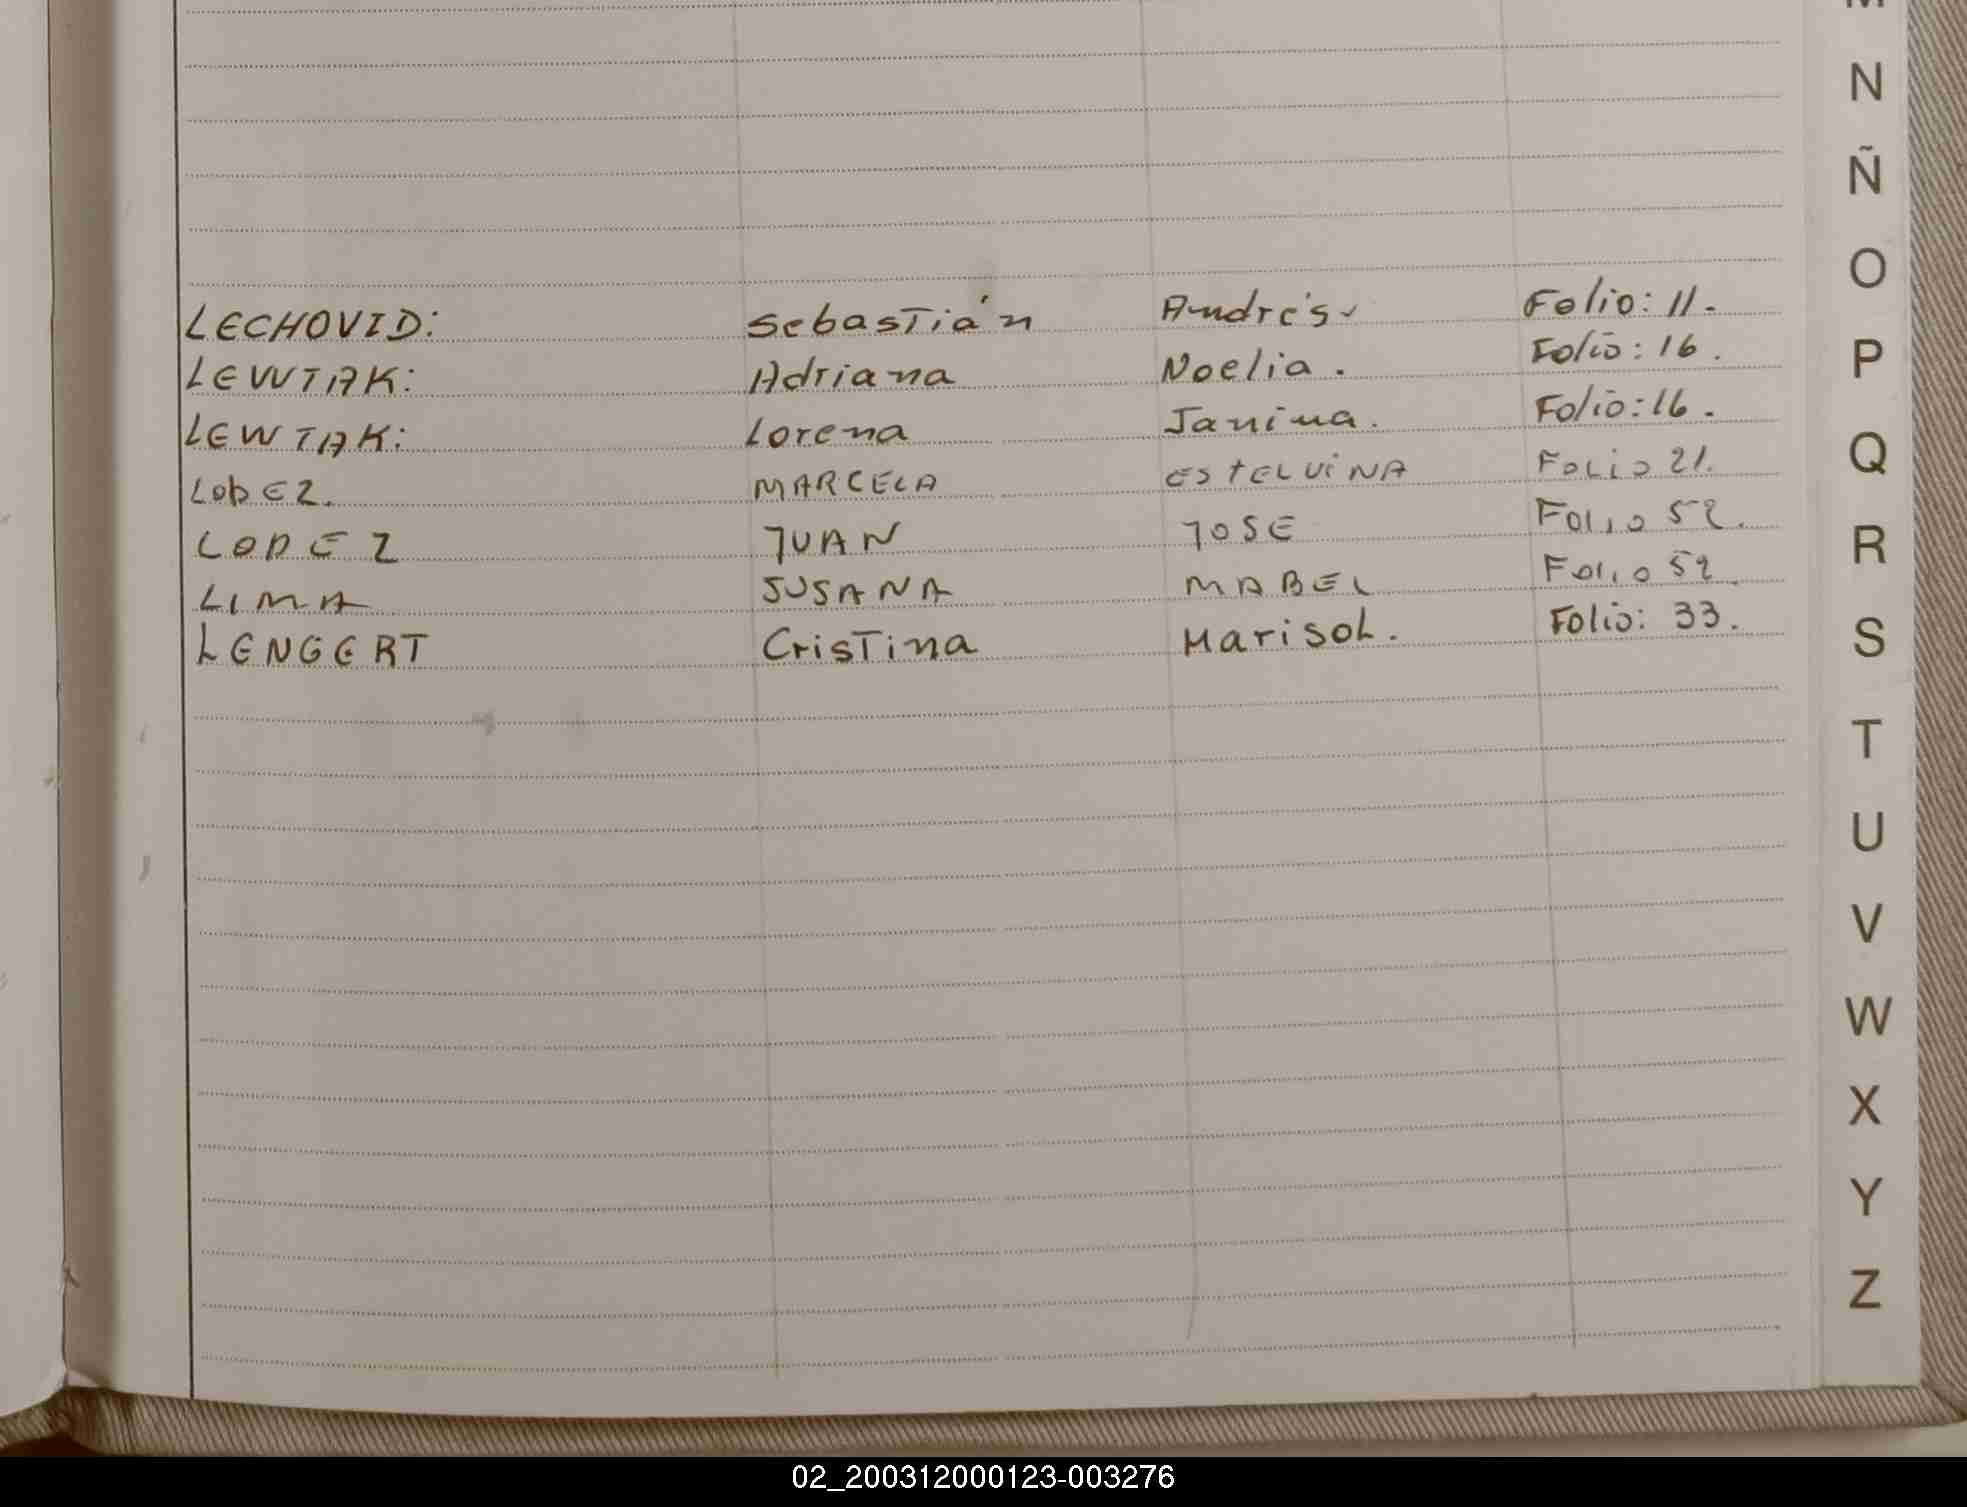 LECHOVID: Sebastián Andrés Folio: 11.
LEWTAK: Adriana Noelia. Folio: 16.
LEWTAK: Lorena Janina. Folio: 16.
LOPEZ. MARCELA ESTELVINA FOLIO 21.
LOPEZ JUAN JOSE FOLIO 52.
LIMA SUSANA MABEL FOLIO 52.
LENGERT Cristina Marisol. Folio: 33.
M
N
Ñ
O
P
Q
R
S
T
U
V
W
X
Y
Z
02_200312000123-003276